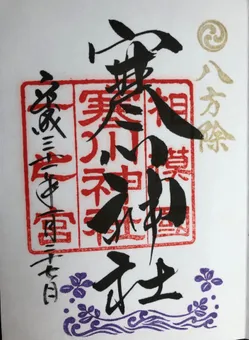 八方除
寒川神社
相模國
寒川神社
一之宮
平成三十年 月二十七日